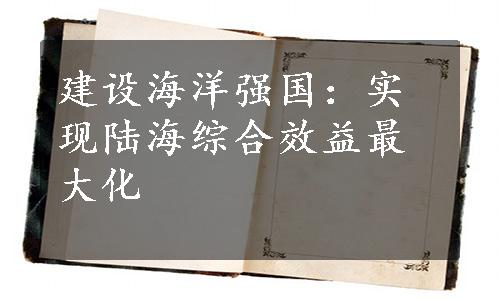 建设海洋强国：实
现陆海综合效益最
大化